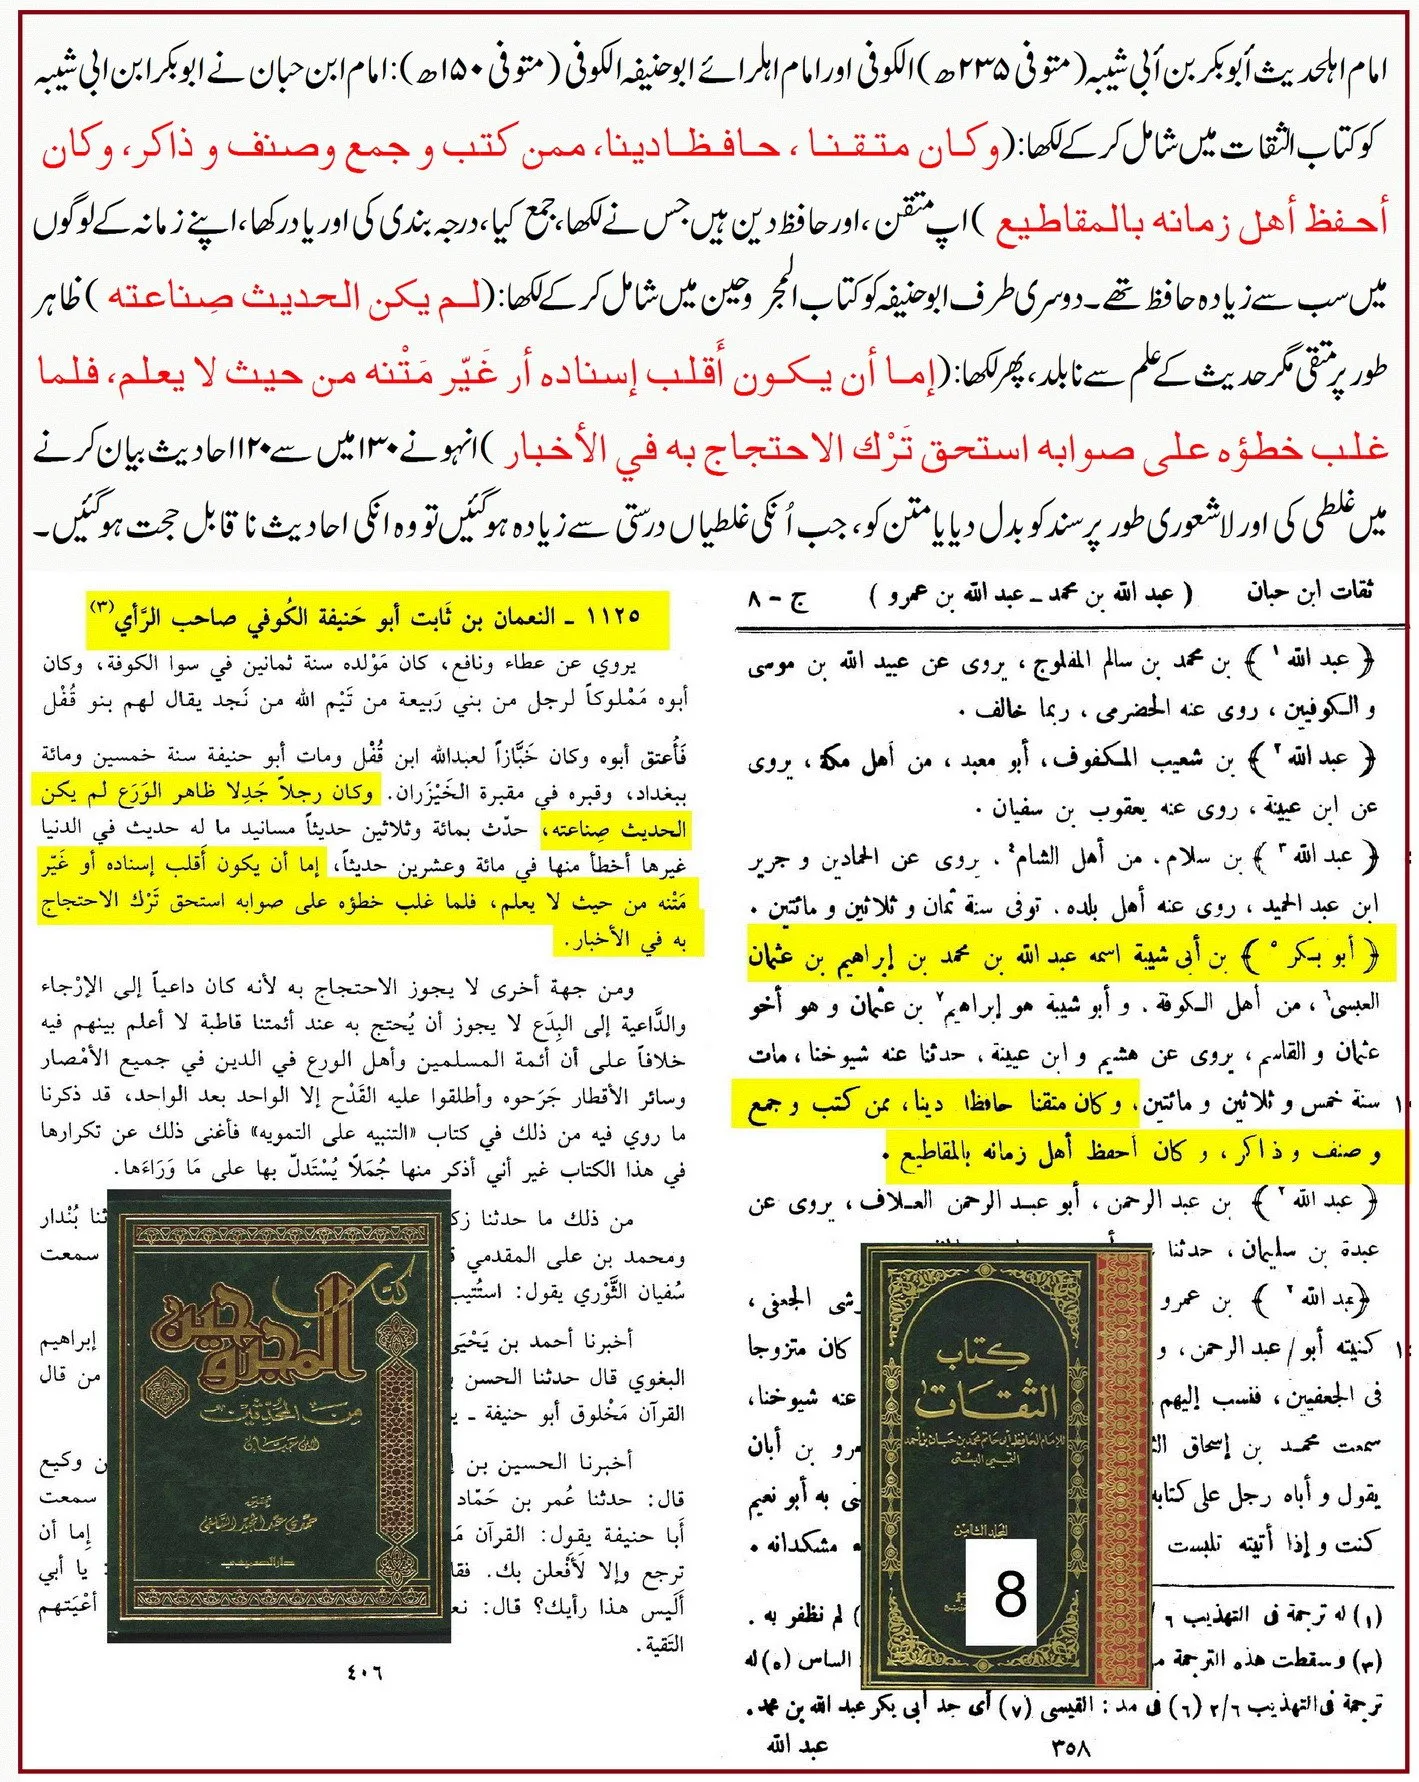 امام اہلحدیث أبوبکر بن أبی شیبہ (متوفی ۲۳۵ھ) الکوفی اور امام اہلرائے ابوحنیفہ الکوفی (متوفی ۱۵۰ھ): امام ابن حبان نے ابوبکر ابن ابی شیبہ
کو کتاب الثقات میں شامل کرکے لکھا: (وكان متقنا ، حافظا دينا، ممن كتب و جمع وصنف و ذاكر، وكان
أحفظ أهل زمانه بالمقاطيع ) اپ متقن ، اور حافظ دین ہیں جس نے لکھا، جمع کیا، درجہ بندی کی اور یاد رکھا، اپنے زمانہ کے لوگوں
میں سب سے زیادہ حافظ تھے۔ دوسری طرف ابوحنیفہ کو کتاب المجروحین میں شامل کرکے لکھا: (لم يكن الحديث صِناعته ) ظاہر
طور پر متقی مگر حدیث کے علم سے نابلد، پھر لکھا: (إما أن يكون أَقلب إسناده أر غَيّر مَتْنه من حيث لا يعلم، فلما
غلب خطؤه على صوابه استحق تَرْك الاحتجاج به في الأخبار ) انہونے ۱۳۰ میں سے ۱۲۰ احادیث بیان کرنے
میں غلطی کی اور لاشعوری طور پر سند کو بدل دیا یا متن کو، جب اُنکی غلطیاں درستی سے زیادہ ہوگئیں تو وہ انکی احادیث ناقابل حجت ہوگئیں۔
ثقات ابن حبان ( عبد الله بن محمد ـ عبد الله بن عمرو ) ج - ٨
﴿ عبد الله ١ ﴾ بن محمد بن سالم المفلوج ، يروى عن عبيد الله بن موسى
و الكوفيين ، روى عنه الحضرمى ، ربما خالف .
﴿ عبد الله ٢ ﴾ بن شعيب المكفوف، أبو معبد ، من أهل مكة ، يروى
عن ابن عيينة ، روى عنه يعقوب بن سفيان .
﴿ عبد الله ٣ ﴾ بن سلام. من أهل الشام ٤ . يروى عن الحمادين و جرير
ابن عبد الحميد ، روى عنه أهل بلده. توفى سنة ثمان و ثلاثين و مائتين .
﴿ أبو بكر ٥ ﴾ بن أبى شيبة اسمه عبد الله بن محمد بن إبراهيم بن عثمان
العبسى ٦ ، من أهل الكوفة . و أبو شيبة هو إبراهيم ٧ بن عثمان و هو أخو
عثمان و القاسم ، يروى عن هشيم و ابن عيينة ، حدثنا عنه شيوخنا ، مات
سنة خمس و ثلاثين و مائتين، وكان متقنا حافظا دينا ، ممن كتب و جمع
و صنف و ذاكر ، و كان أحفظ أهل زمانه بالمقاطيع .
﴿ عبد الله ٢ ﴾ بن عبد الرحمن ، أبو عبد الرحمن العلاف ، يروى عن
عبدة بن سليمان ، حدثنا
﴿ عبد الله ٢ ﴾ بن عمرو رشى الجعفى ،
كنيته أبو / عبد الرحمن ، و كان متزوجا
فى الجعفيين ، فنسب إليهم عنه شيوخنا،
سمعت محمد بن إسحاق رو بن أبان
يقول و أتاه رجل على كتابه به أبو نعيم
كنت و إذا أتيته تلبست مشكدانه .
(١) له ترجمة فى التهذيب ٦ لم نظفر به .
(٣) وسقطت هذه الترجمة الساس (٥) له
ترجمة فى التهذيب ٢/٦ (٦) فى مد : القيسى (٧) أى جد أبى بكر عبد الله بن محمد.
٣٥٨ عبد الله
كتاب
الثقات
للإمام الحافظ أبي حاتم محمد بن حبان بن أحمد
التميمي البستي
المجلد الثامن
8
١١٢٥ ـ النعمان بن ثَابت أبو حَنيفة الكُوفي صاحب الرَّأي (٣)
يروي عن عطاء ونافع، كان مَوْلده سنة ثمانين في سوا الكوفة، وكان
أبوه مَمْلوكاً لرجل من بني رَبيعة من تَيْم الله من نَجد يقال لهم بنو قُفْل
فَأُعتق أبوه وكان خَبَّازاً لعبدالله ابن قُفْل ومات أبو حنيفة سنة خمسين ومائة
ببغداد، وقبره في مقبرة الخَيْزَران. وكان رجلاً جَدِلا ظاهر الوَرَع لم يكن
الحديث صِناعته، حدّث بمائة وثلاثين حديثاً مسانيد ما له حديث في الدنيا
غيرها أخطأ منها في مائة وعشرين حديثاً، إما أن يكون أَقلب إسناده أو غَيّر
مَتْنه من حيث لا يعلم، فلما غلب خطؤه على صوابه استحق تَرْك الاحتجاج
به في الأخبار.
ومن جهة أخرى لا يجوز الاحتجاج به لأنه كان داعياً إلى الإرْجاء
والدَّاعية إلى البِدَع لا يجوز أن يُحتج به عند أئمتنا قاطبة لا أعلم بينهم فيه
خلافاً على أن أئمة المسلمين وأهل الورع في الدين في جميع الأمْصار
وسائر الأقطار جَرَحوه وأطلقوا عليه القَدْح إلا الواحد بعد الواحد، قد ذكرنا
ما روي فيه من ذلك في كتاب «التنبيه على التمويه» فأغنى ذلك عن تكرارها
في هذا الكتاب غير أني أذكر منها جُمَلًا يُسْتَدلّ بها على مَا وَرَاءَها.
من ذلك ما حدثنا زك ثنا بُنْدار
ومحمد بن على المقدمي سمعت
سُفيان الثَّوْري يقول: استُتيب
أخبرنا أحمد بن يَحْيَى إبراهيم
البغوي قال حدثنا الحسن من قال
القرآن مَخْلوق أبو حنيفة ـ
أخبرنا الحسين بن وكيع
قال: حدثنا عُمر بن حَمّاد سمعت
أبا حنيفة يقول: القرآن إما أن
ترجع وإلا لَأفْعلن بك. فقا يا أبي
أَلَيس هذا رأيك؟ قال: نعـ أعْيَتهم
التَقية.
٤٠٦
كتاب
المجروحين
من المحدثين
لابن حبان
تحقيق
حمدي عبد المجيد السلفي
دار الصميعي